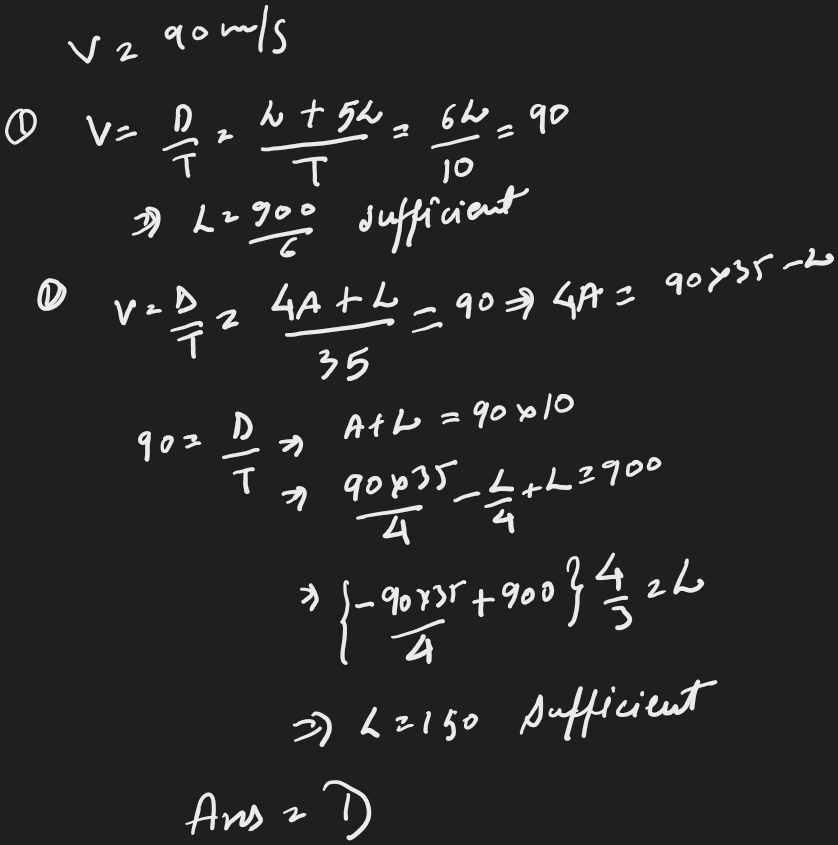 V = 90 m/s
① V = D/T = L + 5L/T = 6L/10 = 90
⇒ L = 900/6 sufficient
② V = D/T = 4A + L/35 = 90 ⇒ 4A = 90×35 - L
90 = D/T ⇒ A + L = 90×10
⇒ 90×35/4 - L/4 + L = 900
⇒ {-90×35/4 + 900} 4/3 = L
⇒ L = 150 sufficient
Ans = D